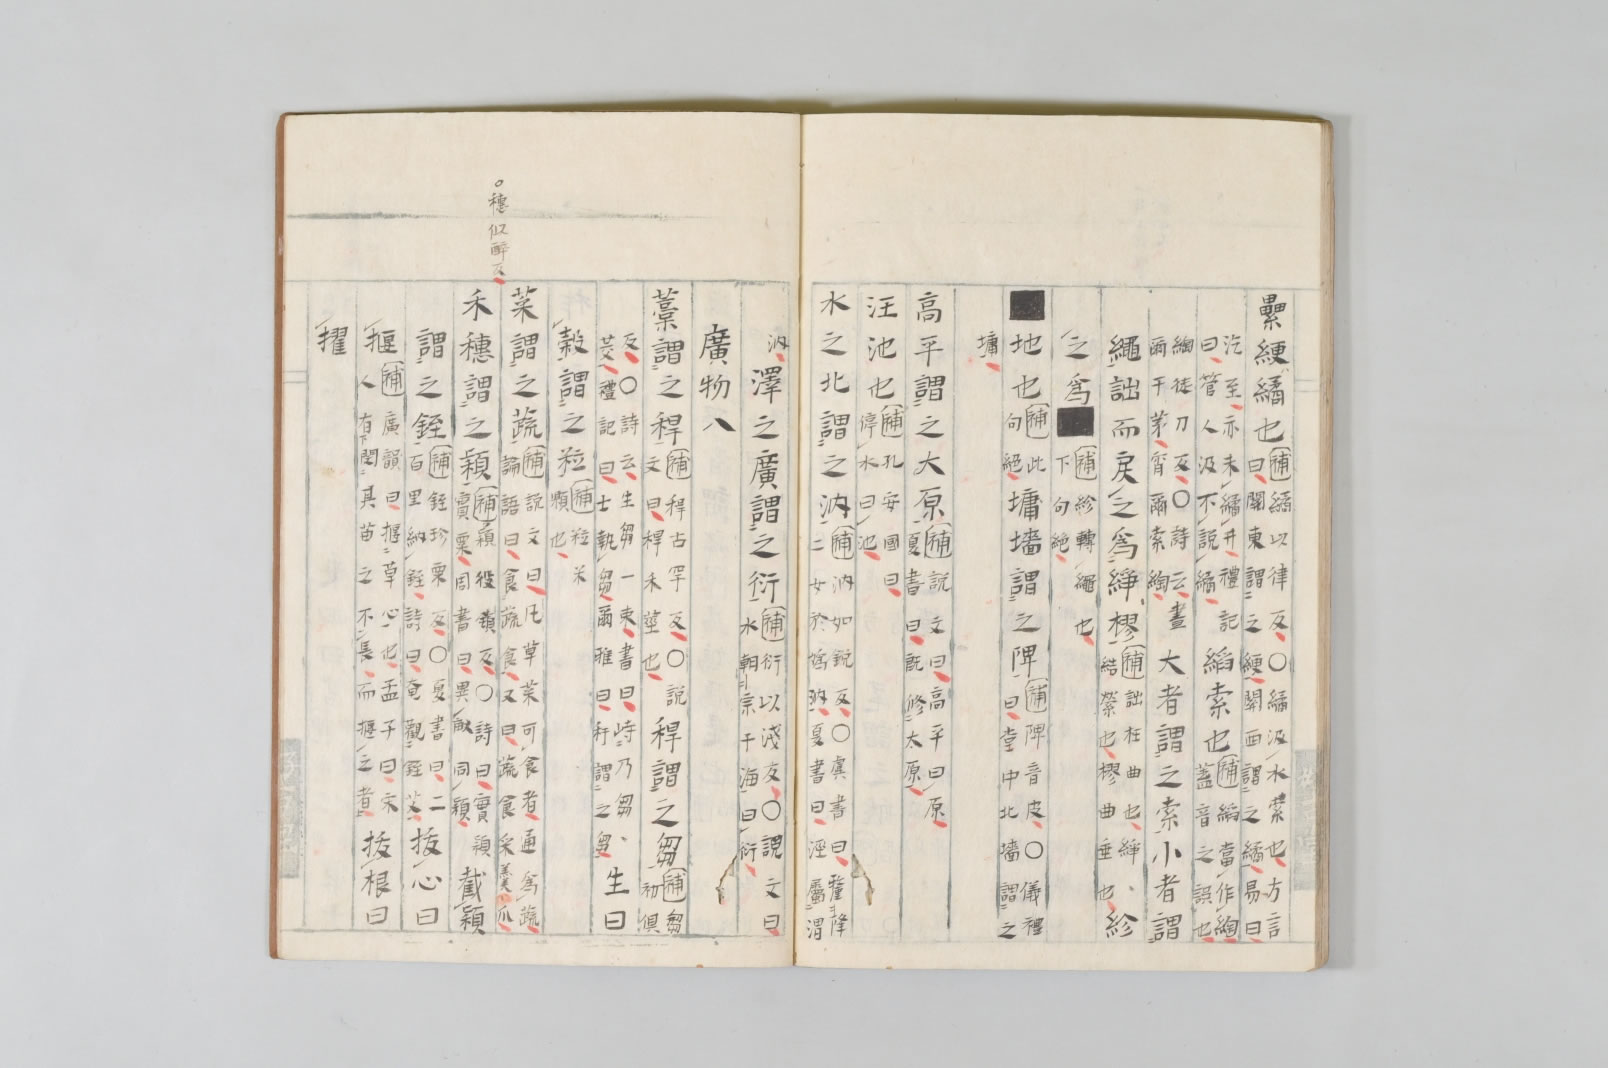 纍綆繘也補繘以律反〇繘汲水綮也方言
曰關東謂之綆關西謂之繘易曰
汔至亦未繘井禮記
曰管人汲不說繘綯索也補綯當作綯
蓋音之誤也
綯徒刀反〇詩云晝
爾于茅宵爾索綯大者謂之索小者謂
繩詘而戾之爲綷樛補詘枉曲也綷紾
結縈也樛曲垂也
之爲■補紾轉繩也
下句絕
■地也補此
句絕墉墻謂之陴補陴音皮〇儀禮
曰堂中北墻謂之
墉
高平謂之大原補說文曰高平曰原
夏書曰旣修太原
汪池也補孔安國曰
停水曰池
水之北謂之汭補汭如銳反〇虞書曰釐降
二女於嬀汭夏書曰涇屬渭
汭澤之廣謂之衍補衍以淺反〇說文曰
水朝宗于海曰衍
廣物八
藁謂之稈補稈古罕反〇說
文曰稈禾莖也稈謂之芻補芻
初俱
反〇詩云生芻一束書曰峙乃芻
茭禮記曰士執芻爾雅曰秆謂之芻生曰
穀謂之粒補粒米
顆也
菜謂之蔬補說文曰凡草菜可食者通爲蔬
論語曰食蔬食又曰蔬食菜羹瓜
禾穗謂之穎補穎役頴反〇詩曰實穎
實栗周書曰異畝同穎截穎
謂之銍補銍珍栗反〇夏書曰二
百里納銍詩曰奄觀銍艾拔心曰
揠補廣韻曰揠草心也孟子曰宋
人有閔其苗之不長而揠之者拔根曰
擢
〇穗似醉反